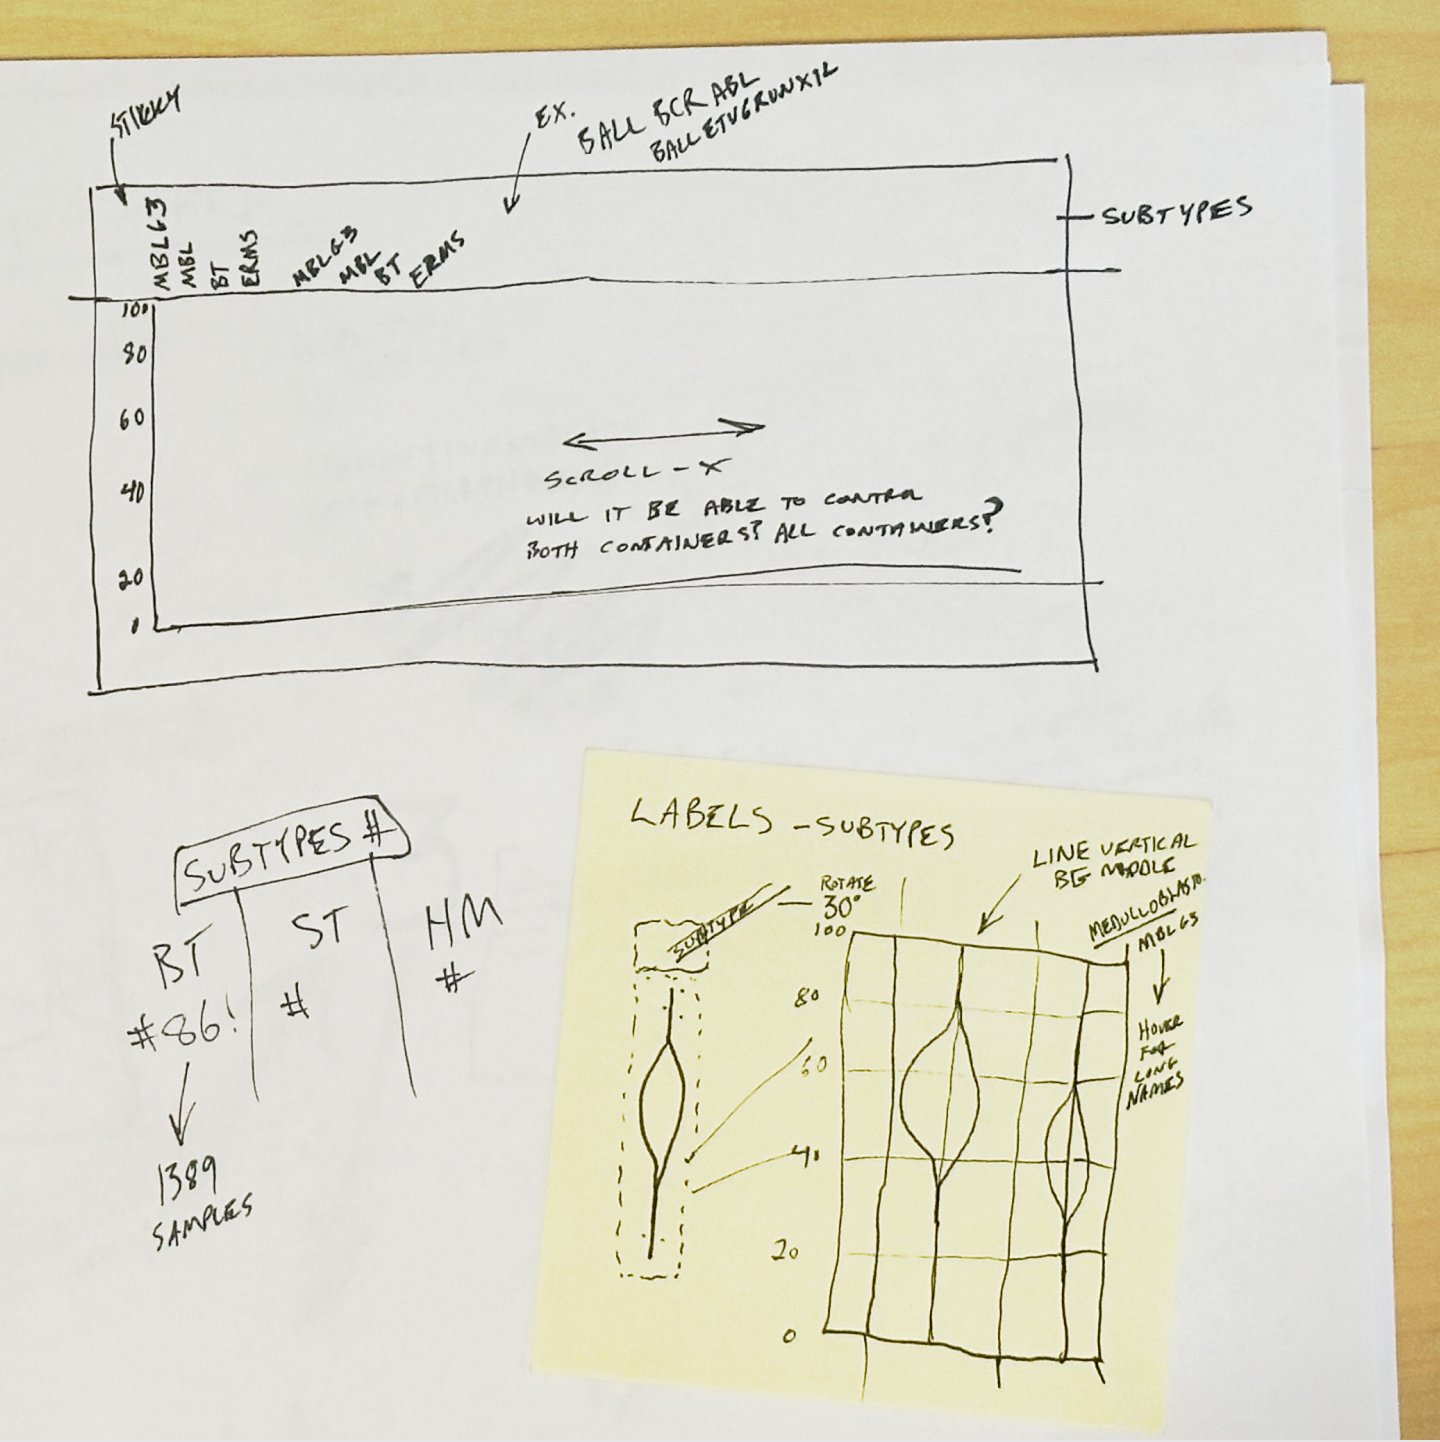 STICKY
EX.
BALL BCR ABL
BALLETVGRUNX1L
SUBTYPES
MBLG3
MBL
BT
ERMS
MBLG3
MBL
BT
ERMS
100
80
60
40
20
0
SCROLL - X
WILL IT BE ABLE TO CONTROL
BOTH CONTAINERS? ALL CONTAINERS?
SUBTYPES #
BT
#86!
ST
#
HM
#
1389
SAMPLES
LABELS - SUBTYPES
LINE VERTICAL
BG MIDDLE
SUBTYPE
ROTATE
30°
MEDULLOBLASTO.
MBLG3
HOVER
FOR
LONG
NAMES
100
80
60
40
20
0